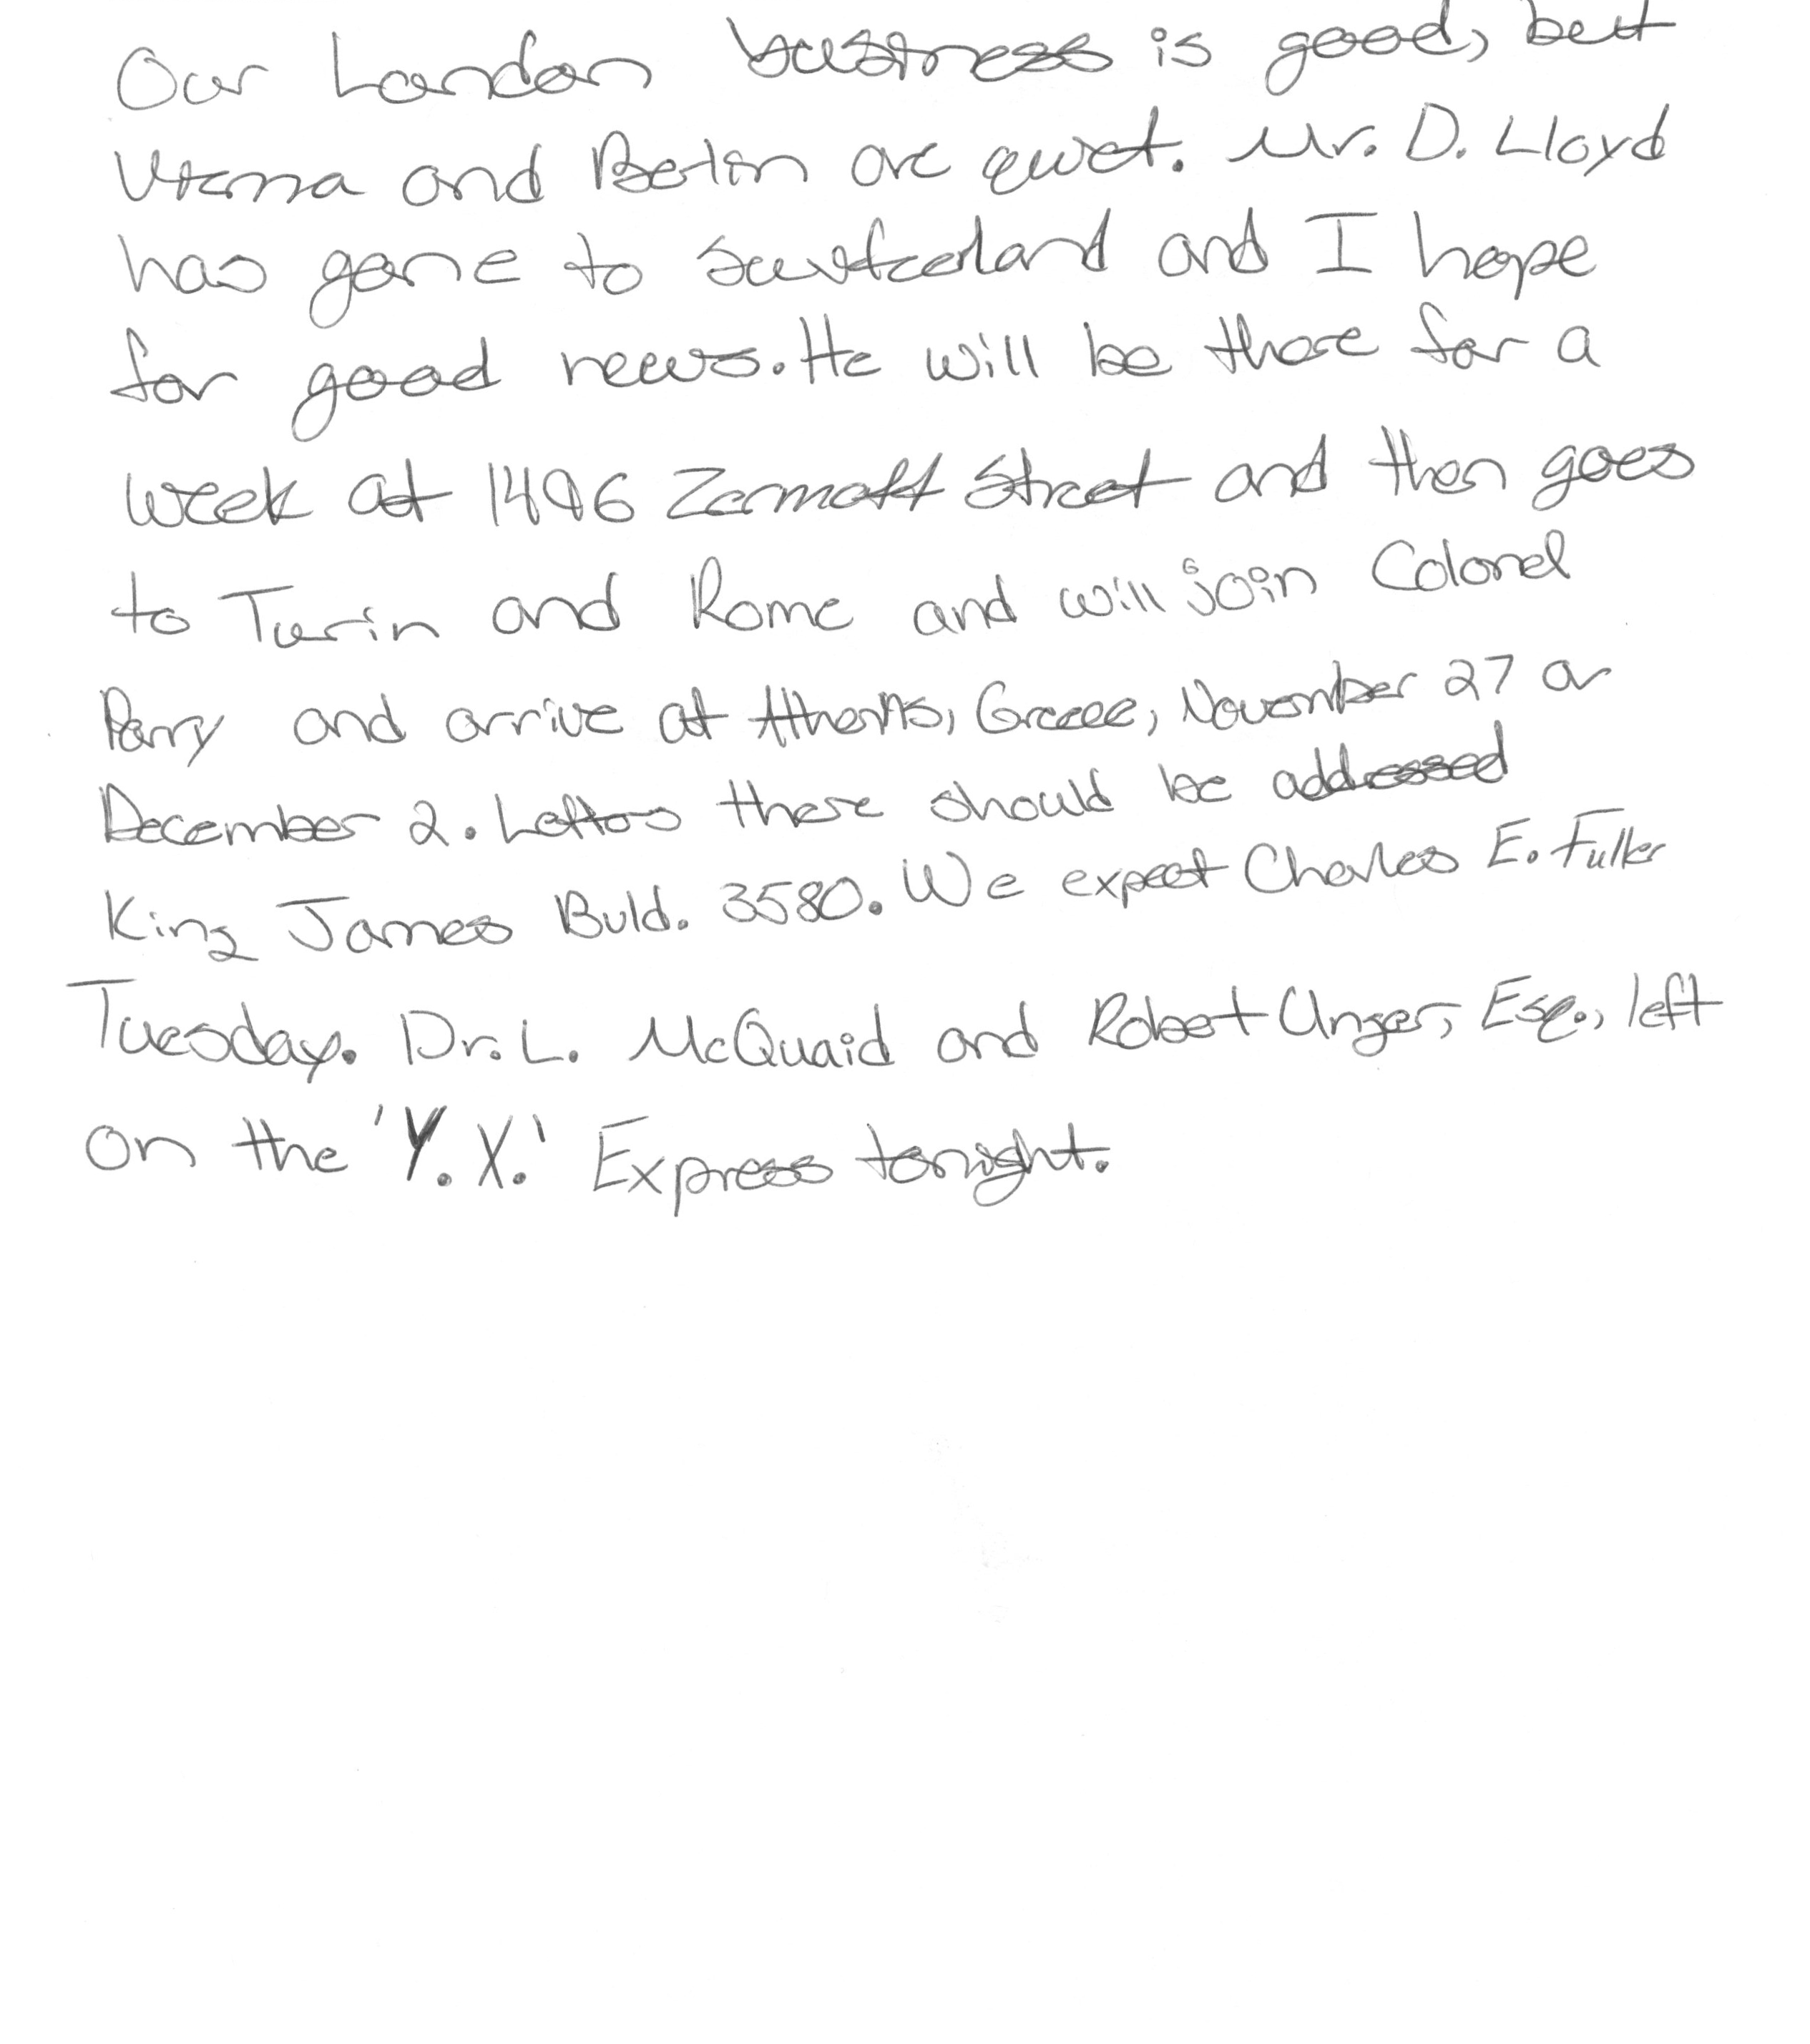 Our London business is good, but
Vienna and Berlin are quiet. Mr. D. Lloyd
has gone to Switzerland and I hope
for good news. He will be there for a
week at 1496 Zermott Street and then goes
to Turin and Rome and will join Colonel
Parry and arrive at Athens, Greece, November 27 or
December 2. Letters there should be addressed
King James Buld. 3580. We expect Charles E. Fuller
Tuesday. Dr. L. McQuaid and Robert Unger, Esq., left
on the 'Y.X.' Express tonight.